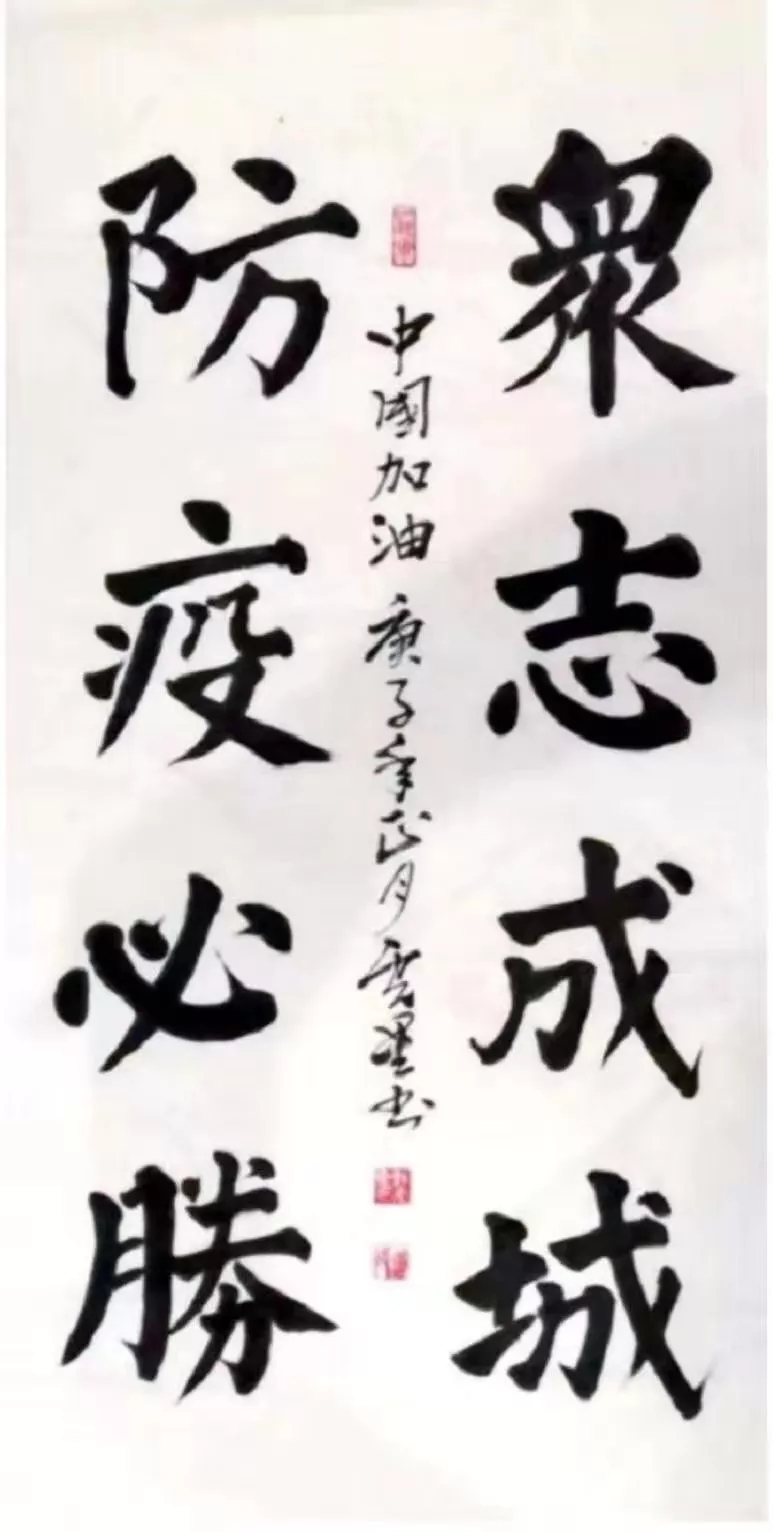 眾志成城
中國加油 庚子年正月雲星书
防疫必勝